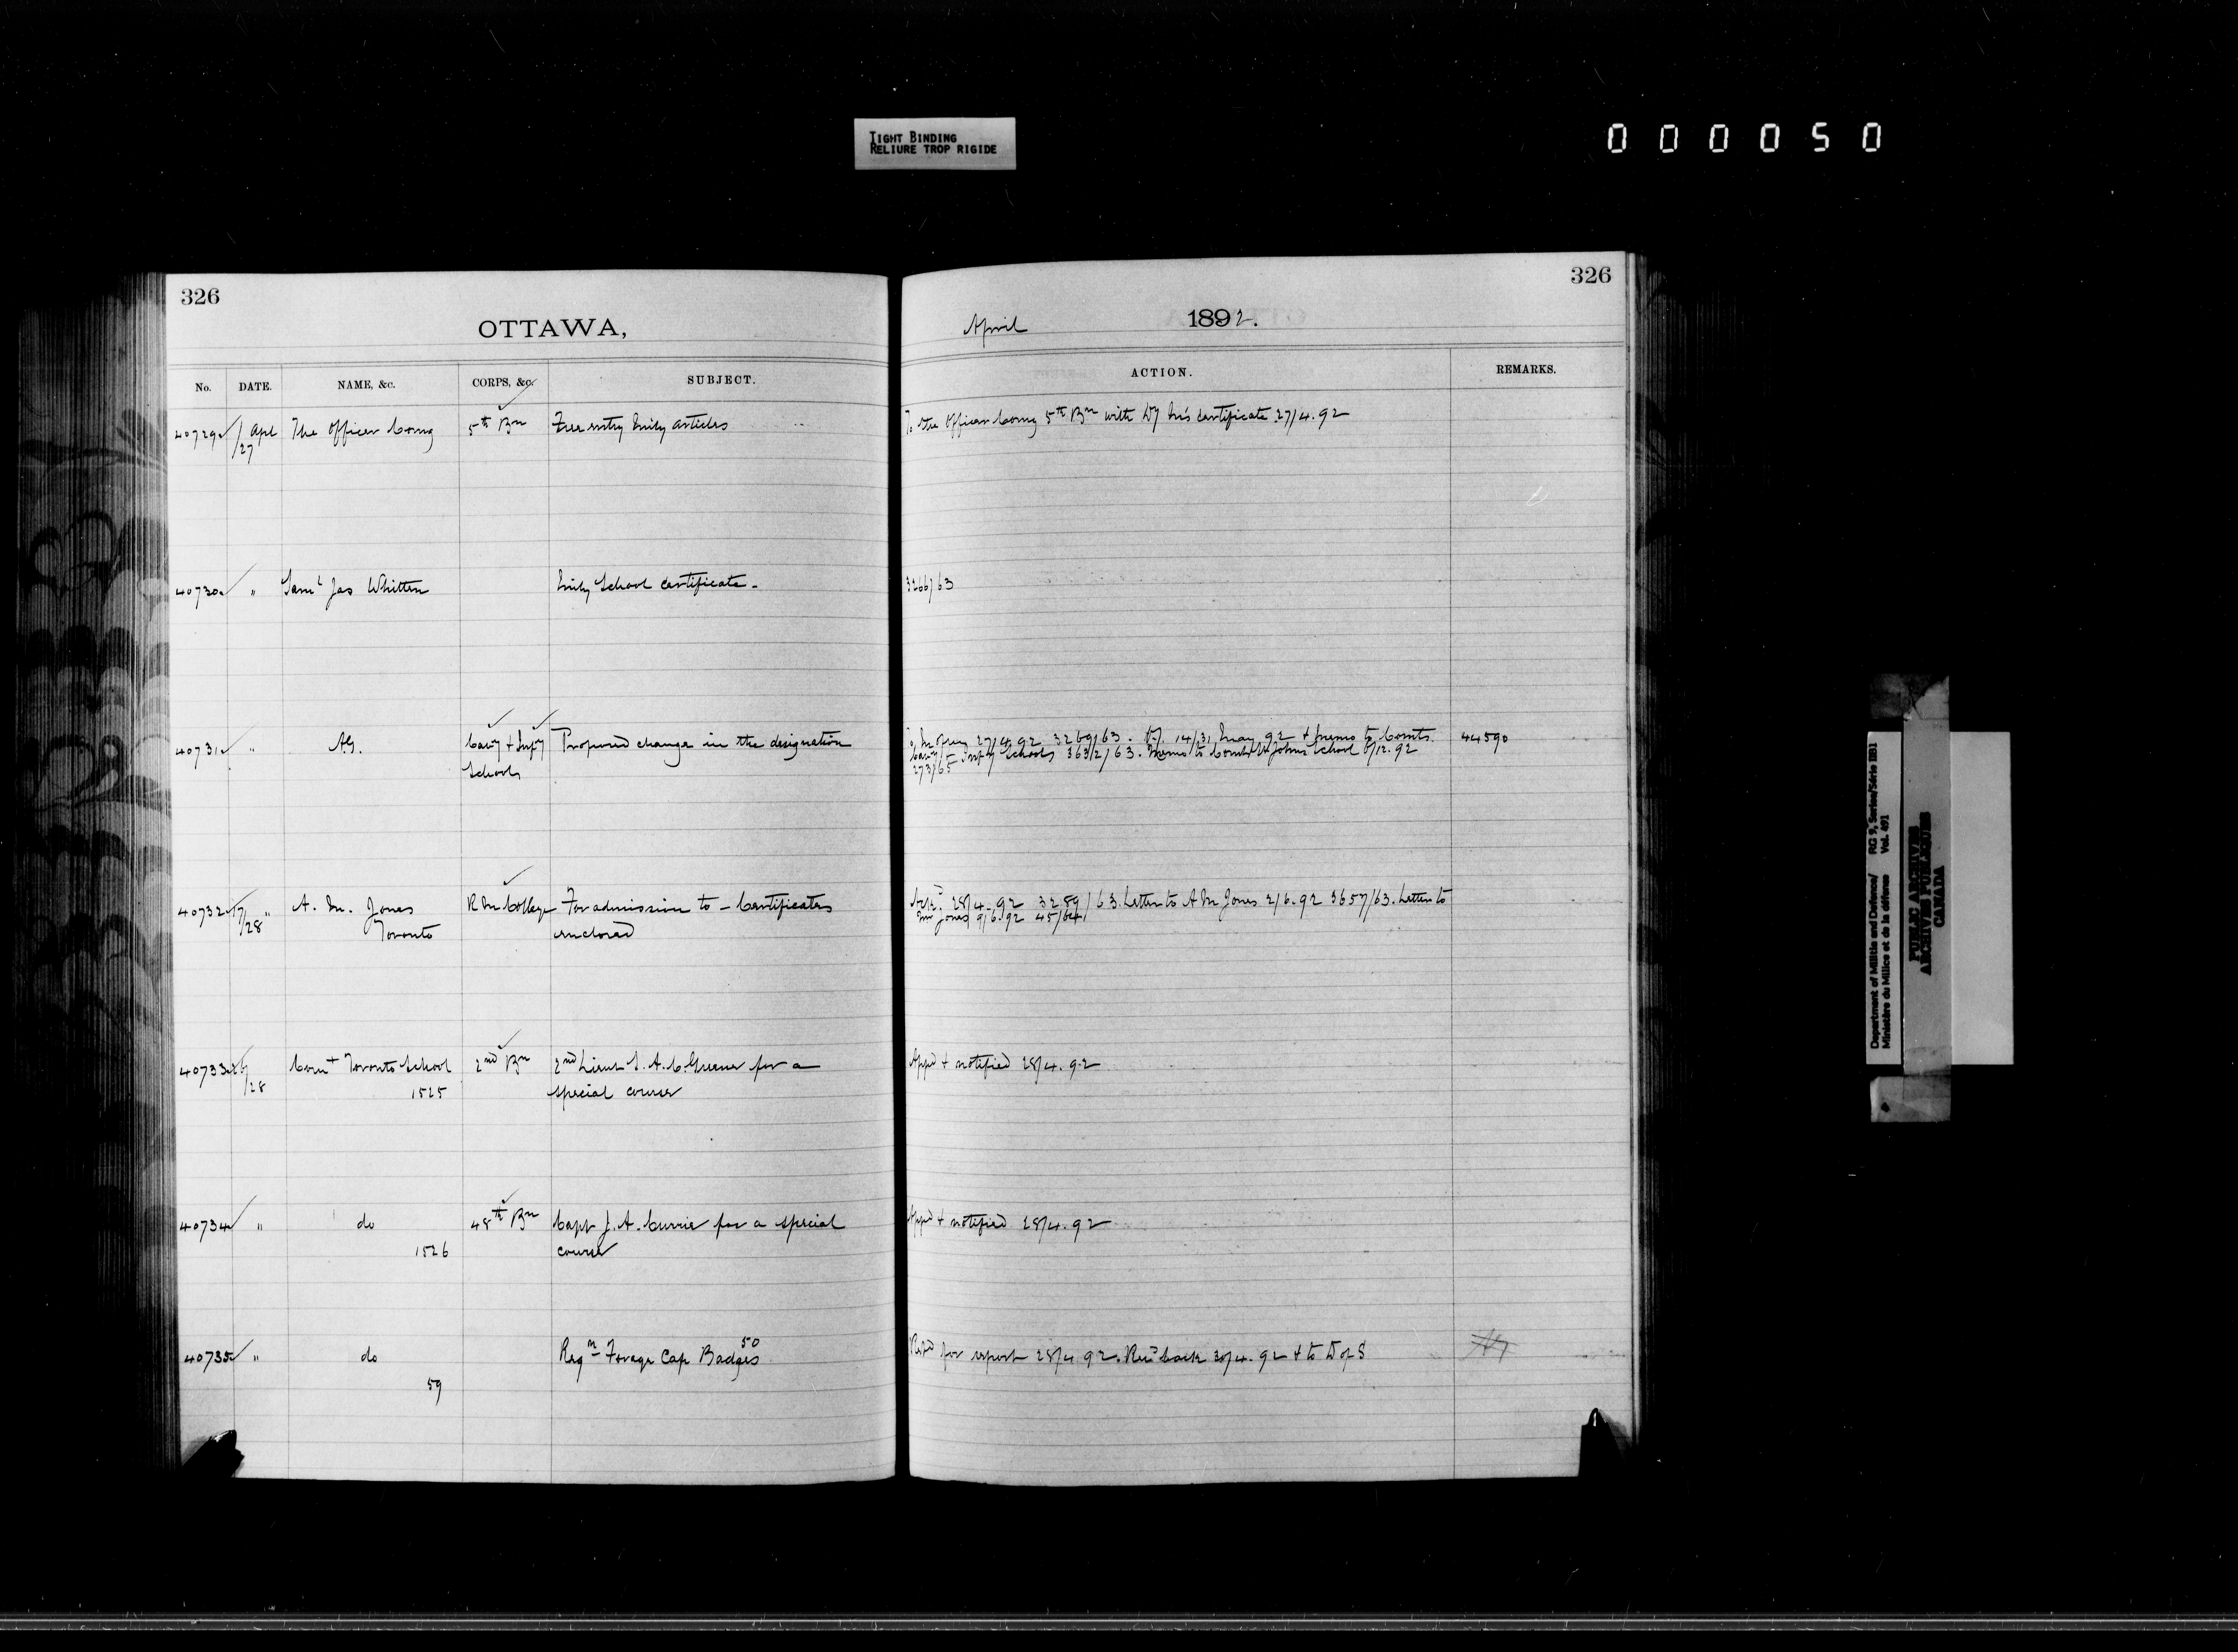 TIGHT BINDING
RELIURE TROP RIGIDE
000050
326
OTTAWA,
No. DATE. NAME, &c. CORPS, &c. SUBJECT.
40729 Apl The Officer Comg 5th Bn Free entry Mily articles
27
40730 " Saml Jas Whitten Mily School Certificate -
40731 " AG. Cavy + Infy Proposed change in the designation
Schools
40732 17/28 " A. M. Jones R M College For admission to - Certificates
Toronto enclosed
40733 /28 Comt Toronto School 2nd Bn 2nd Lieut A. C. for a
1525 special course
40734 " do 48th Bn Capt J. A. Currie for a special
1526 course
40735 " do Reqn Forage Cap Badges 50
59
326
April 1892.
ACTION. REMARKS.
To the Officer Comg 5th Bn with Dy Mr's Certificate 27/4.92
3266/63
27/4.92 3269/63. 14/31 May 92 + Memo to Comts. 44590
Cavy + Infy Schools 3632/63. Memo to Comt St Johns School /12.92
273/65
28/4.92 3289/63. Letter to A M Jones 2/6.92 3657/63. Letter to
Mr Jones 9/6.92 45/64
Appd + notified 28/4.92
Appd + notified 28/4.92
Refd for report 28/4.92. Recd back 30/4.92 + to D of S
Department of Militia and Defence/ RG 9, Series/Série IIB1
Ministère du Milice et de la défense Vol. 491
PUBLIC ARCHIVES
ARCHIVES PUBLIQUES
CANADA